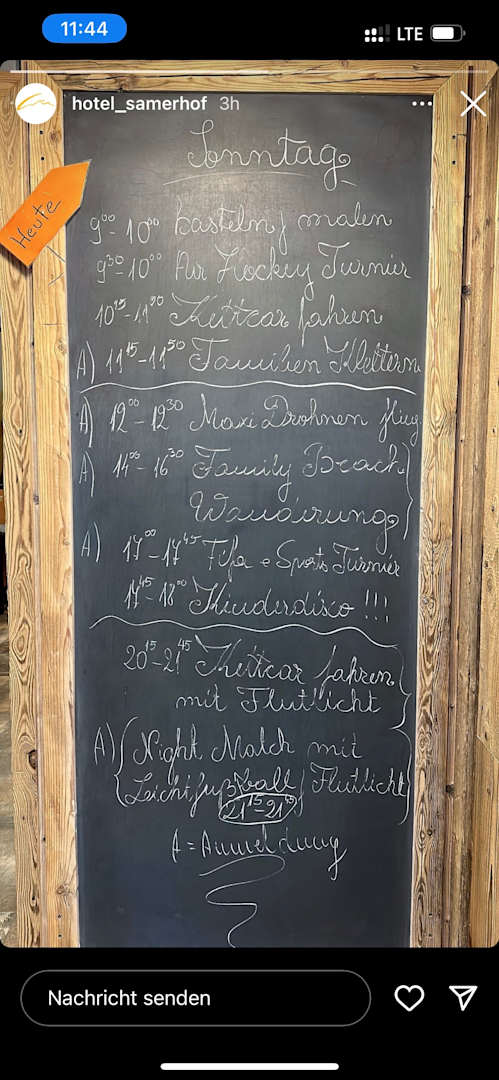 11:44 LTE
hotel_samerhof 3h
Sonntag
Heute
9⁰⁰-10⁰⁰ basteln / malen
9³⁰-10⁰⁰ Air Hockey Turnier
10¹⁵-11⁰⁰ Kettcar fahren
A) 11¹⁵-11⁵⁰ Familien Klettern
A) 12⁰⁰-12³⁰ Maxi Drohnen flug
A) 14⁰⁰-16³⁰ Family Beach
Wanderung
A) 17⁰⁰-17⁴⁵ Fifa e Sports Turnier
17⁴⁵-18⁰⁰ Kinderdisco !!!
20¹⁵-21⁴⁵ Kettcar fahren
mit Flutlicht
A) Night Match mit
Leichtfußball / Flutlicht
21¹⁵-21
A = Anmeldung
Nachricht senden